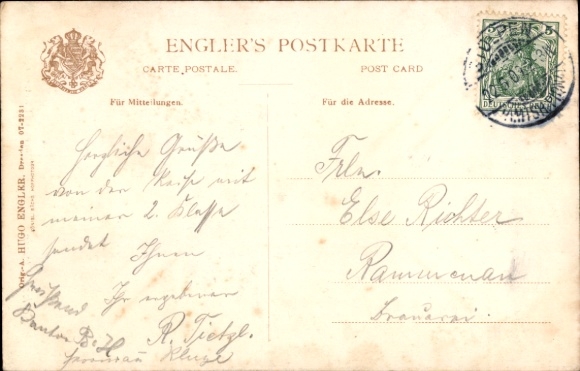 ENGLER'S POSTKARTE
CARTE POSTALE. POST CARD
Für Mitteilungen. Für die Adresse.
Herzliche Grüße
von der Reise mit
meiner 2. Klasse
sendet Ihnen
Ihr ergebener
R. Tietzl.
Frln.
Else Richter
Rammenau
Brauerei.
HUGO ENGLER, Dresden 07-2251
OPPEN
5
DEUTSCHES REICH